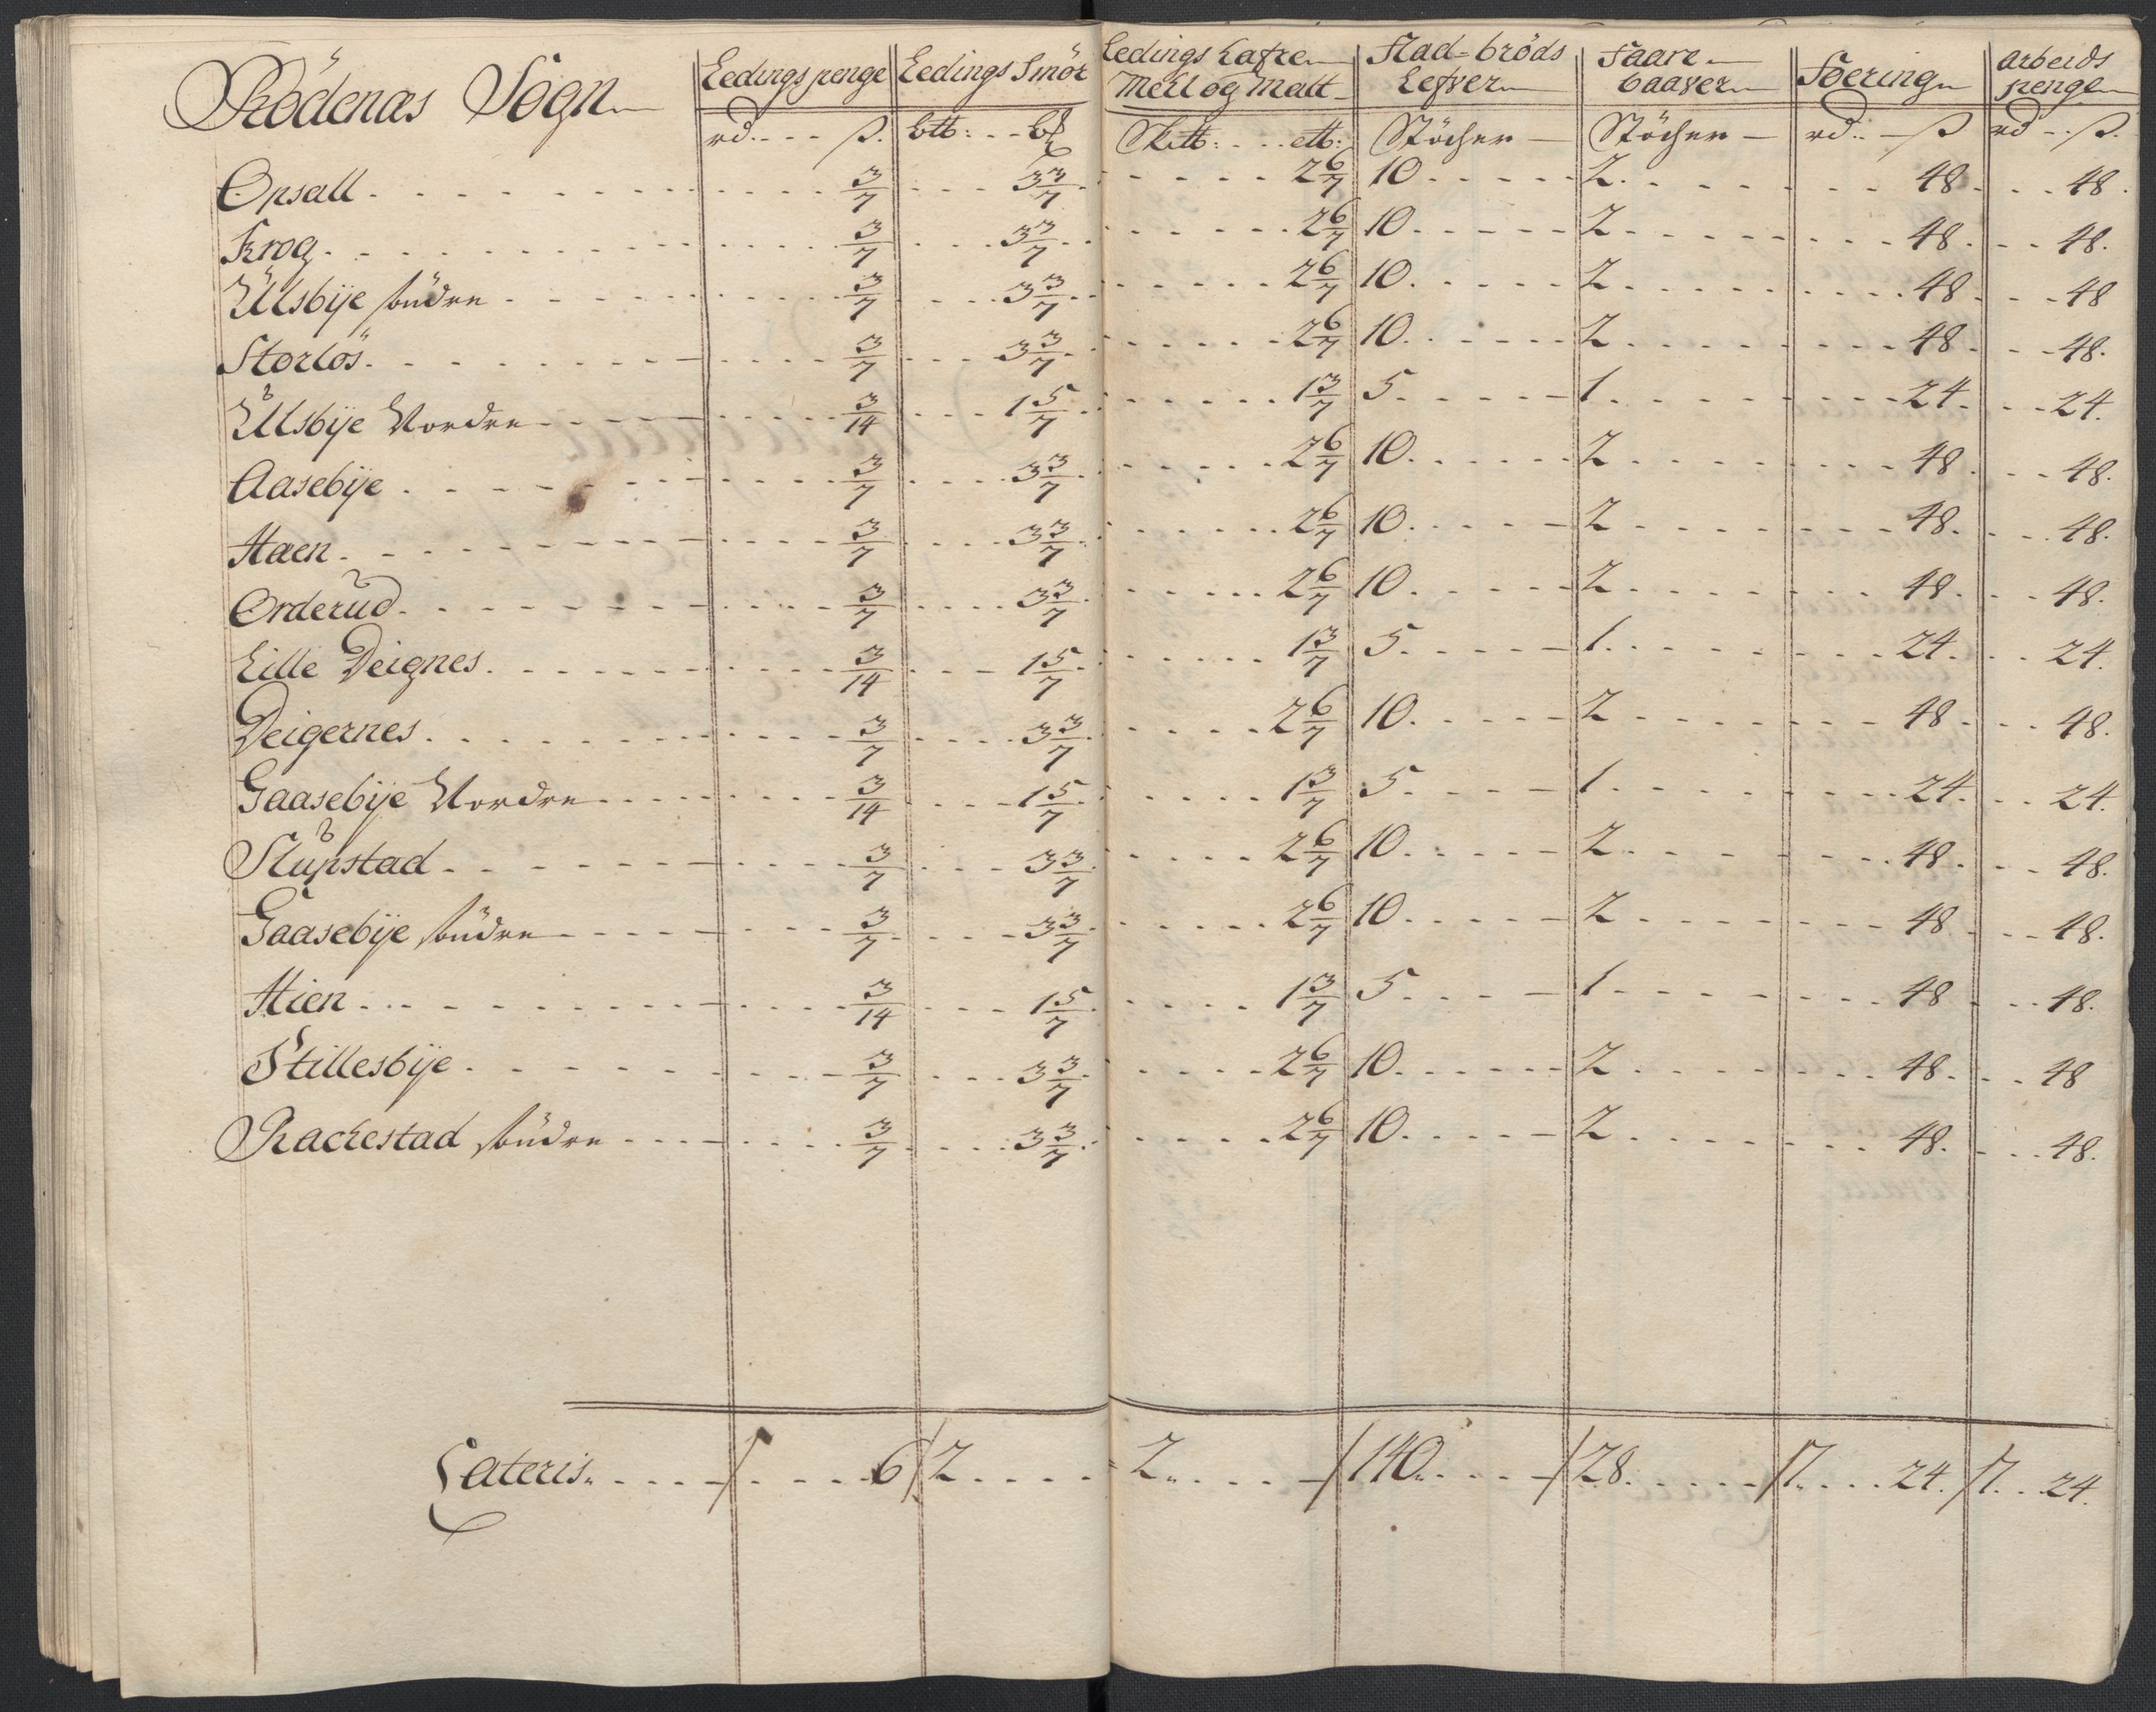 Rödenæs Sogn | Ledings penge | Ledings Smör | Ledings Hafre Mehl og Malt | Flad-bröds Lefver | Faare baager | Foering | Arbeids penge
rd. ß. | btt: b℔ | Sk℔: ℔: | Stöcher | Stöcher | rd: ß | rd ß.
Opsall 3/7 3 3/7 2 6/7 10 2 48 48
Krog 3/7 3 3/7 2 6/7 10 2 48 48
Ülsbije söndre 3/7 3 3/7 2 6/7 10 2 48 48
Storlös 3/7 3 3/7 2 6/7 10 2 48 48
Ülsbije Nordre 3/14 1 5/7 1 3/7 5 1 24 24
Aasebije 3/7 3 3/7 2 6/7 10 2 48 48
Haen 3/7 3 3/7 2 6/7 10 2 48 48
Orderud 3/7 3 3/7 2 6/7 10 2 48 48
Lille Deignes 3/14 1 5/7 1 3/7 5 1 24 24
Deigernes 3/7 3 3/7 2 6/7 10 2 48 48
Gaasebije Nordre 3/14 1 5/7 1 3/7 5 1 24 24
Slupstad 3/7 3 3/7 2 6/7 10 2 48 48
Gaasebije söndre 3/7 3 3/7 2 6/7 10 2 48 48
Hien 3/14 1 5/7 1 3/7 5 1 48 48
Stillesbije 3/7 3 3/7 2 6/7 10 2 48 48
Rachestad söndre 3/7 3 3/7 2 6/7 10 2 48 48
Lateris 6 2 2 140 28 7 24 7 24